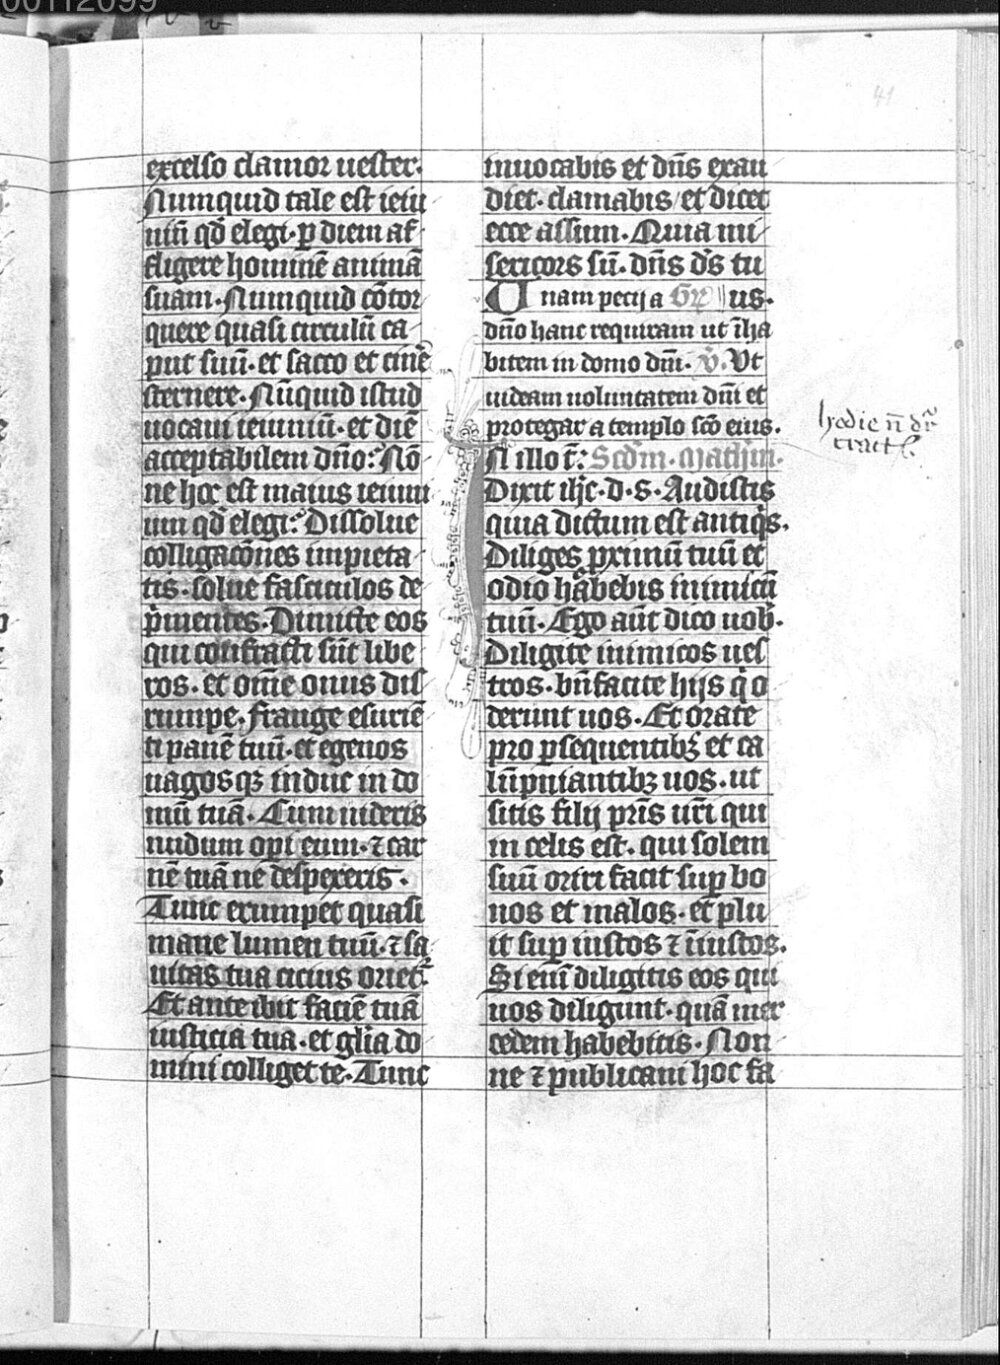 00112099
41
excelso clamor uester.
Numquid tale est ieiu
niū qd̄ elegi. ꝑ diem af
fligere hominē animā
suam. Numquid cōtor
quere quasi circulū ca
put suū. et sacco et cinē
sternere. Nūquid istud
uocaui ieiuniū. et diē
acceptabilem dn̄o: Nō
ne hoc est maius ieiuni
um qd̄ elegi: Dissolue
colligacōnes impieta
tis. solue fasciculos de
p̄mentes. Dimitte eos
qui confracti sūt libe
ros. et om̄e onus dis
rumpe. frange esuriē
ti panē tuū. et egenos
uagosqꝫ induc in do
mū tuā. Cum uideris
nudum opi eum. ⁊ car
nē tuā ne despexeris.
Tunc erumpet quasi
mane lumen tuū. ⁊ sa
nitas tua cicius oriet᷑.
Et ante ibit faciē tuā
iusticia tua. et glīa do
mini colliget te. Tunc
inuocabis et dn̄s exau
diet. clamabis et dicet
ecce assum. Quia mi
sericors sū. dn̄s ds̄ tu
Unam pecij a Gr̄ us.
dn̄o hanc requiram ut īha
bitem in domo dn̄i. v̄. Ut
uideam uoluntatem dn̄i et
protegar a templo sc̄o eius.
In illo t̄: Scd̄m. Mathm̄.
Dixit ih̄c. d. s. Audistis
quia dictum est antiqͥs.
Diliges pximū tuū et
odio habebis inimicū
tuū. Ego aūt dico uob̄.
Diligite inimicos ues
tros. bn̄facite hijs qͥ o
derunt uos. Et orate
pro ꝑsequentibꝫ et ca
lūpniantibꝫ uos. ut
sitis filij pr̄is ur̄i qui
in celis est. qui solem
suū oriri facit suꝑ bo
nos et malos. et plu
it suꝑ iustos ⁊ īiustos.
Si enī diligitis eos qui
uos diligunt. quā mer
cedem habebitis. Non
ne ⁊ publicani hoc fa
hedie n̄ dr̄
tract